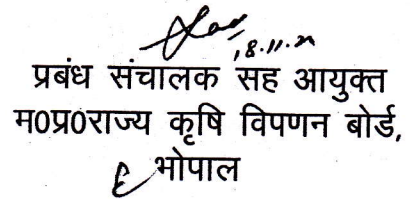 18.11.21
प्रबंध संचालक सह आयुक्त
म0प्र0राज्य कृषि विपणन बोर्ड,
भोपाल